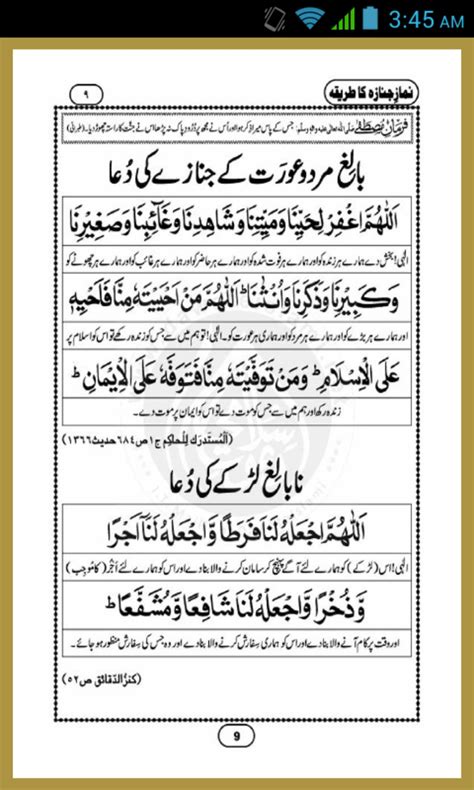 3:45 AM
نمازِ جنازہ کا طریقہ
۹
فرمانِ مصطفےٰ صلی اللہ تعالیٰ علیہ والہ وسلم: جس کے پاس میرا ذکر ہوا اور اُس نے مجھ پر دُرودِ پاک نہ پڑھا اس نے جنّت کا راستہ چھوڑ دیا۔ (طبرانی)
بالِغ مرد و عورَت کے جنازے کی دُعا
اَللّٰهُمَّ اغْفِرْ لِحَيِّنَا وَمَيِّتِنَا وَشَاهِدِنَا وَغَآئِبِنَا وَصَغِيْرِنَا
الٰہی! بخش دے ہمارے ہر زندہ کو اور ہمارے ہر فوت شدہ کو اور ہمارے ہر حاضر کو اور ہمارے ہر غائب کو اور ہمارے ہر چھوٹے کو
وَكَبِيْرِنَا وَذَكَرِنَا وَاُنْثٰنَا ؕ اَللّٰهُمَّ مَنْ اَحْيَيْتَهٗ مِنَّا فَاَحْيِهٖ
اور ہمارے ہر بڑے کو اور ہمارے ہر مرد کو اور ہماری ہر عورت کو۔ الٰہی! تو ہم میں سے جس کو زندہ رکھے تو اس کو اسلام پر
عَلَى الْاِسْلَامِ ؕ وَمَنْ تَوَفَّيْتَهٗ مِنَّا فَتَوَفَّهٗ عَلَى الْاِيْمَانِ ؕ
زندہ رکھ اور ہم میں سے جس کو موت دے تو اس کو ایمان پر موت دے۔
(اَلْمُستَدرَك لِلْحاكِم ج۱ص۶۸۴حدیث۱۳۶۶)
نابالِغ لڑکے کی دُعا
اَللّٰهُمَّ اجْعَلْهُ لَنَا فَرَطًا وَّاجْعَلْهُ لَنَآ اَجْرًا
الٰہی! اس (لڑکے) کو ہمارے لئے آگے پہنچ کر سامان کرنے والا بنادے اور اس کو ہمارے لئے اَجْر (کا مُوجِب)
وَّذُخْرًا وَّاجْعَلْهُ لَنَا شَافِعًا وَّمُشَفَّعًا ؕ
اور وقت پر کام آنے والا بنا دے اور اس کو ہماری سفارش کرنے والا بنا دے اور وہ جس کی سفارش منظور ہو جائے۔
(کنزُالدَّقائق ص۵۲)
9